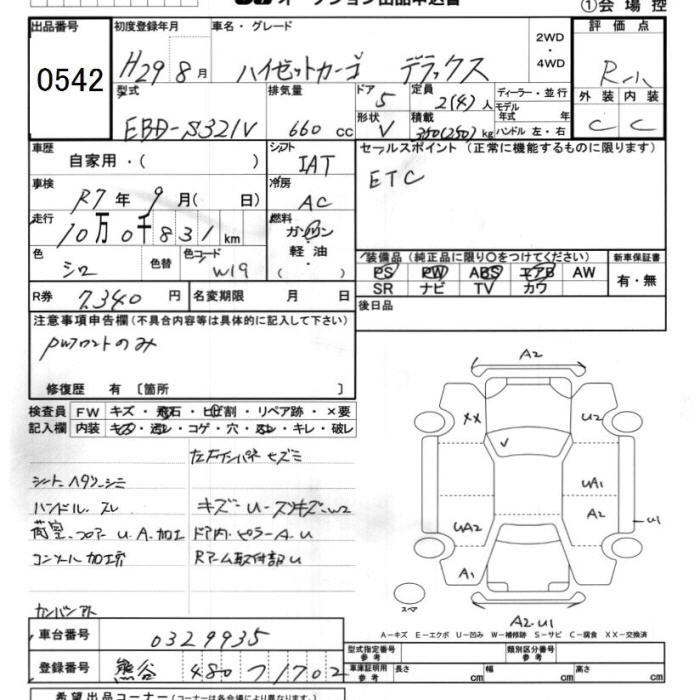 ①会場控
出品番号 0542
初度登録年月 H29 8月
車名・グレード ハイゼットカーゴ デラックス
2WD・4WD
評価点 R-小
外装 内装
C C
型式 EBD-S321V
排気量 660 cc
ドア 5
形状 V
定員 2(4)人
積載 350(250)kg
ディーラー・並行
モデル年式 年
ハンドル 左・右
車歴 自家用・( )
シフト IAT
セールスポイント (正常に機能するものに限ります)
ETC
車検 R7年 9月( 日)
冷房 AC
走行 10万0千831km
燃料 ガソリン・軽油・( )
色 シロ 色替
色コード W19
装備品 (純正品に限り○をつけてください)
PS PW ABS エアB AW
SR ナビ TV カワ
新車保証書 有・無
R券 7,340円
名変期限 月 日
後日品
注意事項申告欄 (不具合内容等は具体的に記入して下さい)
PWフロントのみ
修復歴 有 〔箇所 〕
検査員記入欄 FW キズ・飛石・ヒビ割・リペア跡・×要
内装 キズ・汚レ・コゲ・穴・スレ・キレ・破レ
左Fインパネ セズミ
シート ヘタリ シミ
ハンドル スレ
キズ U スリキズ W2
荷室 フロアー U.A.加工
ドア内 ピラー A.U
コンソール 加工穴
Rアーム取付部 U
カンバンアト
A2
XX
U2
UA1
A2
U1
UA2
A1
スペア
A2-U1
A-キズ E-エクボ U-凹み W-補修跡 S-サビ C-腐食 XX-交換済
車台番号 0329935
登録番号 熊谷 480 ワ 1702
型式指定番号 参考
類別区分番号 参考
車庫証明用 参考 長さ cm 幅 cm 高さ cm
希望出品コーナー (コーナーは各会場により異なります)